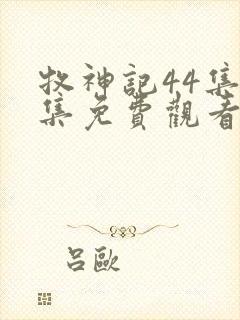 牧神記44集
集免費觀看
呂歐